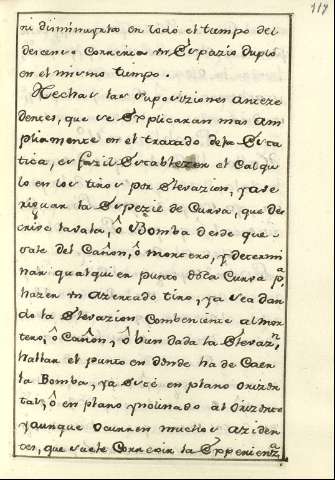 117
ni disminuyeta en todo el tiempo del
descenso Correria un Espazio duplo
en el mismo tiempo.
Hechas las suposiziones antece
dentes, que se Explicaran mas am
pliamente en el tratado de la Esta
tica, es fazil Establezer el Calqu
lo en los tiros por Elevazion, y ave
riguar la Espezie de Curva, que des
crive la vala, ô Bomba desde que
sale del Cañon, ô mortero, y determi
nar qualquier punto de la Curva pa
hazer un azertado tiro, ya sea dan
do la Elevazion Combeniente al mor
tero, ô Cañon, ô bien dada la Elevazn
hallar el punto en donde ha de Caer
la Bomba, ya esté en plano orizon
tal, ô en plano ynclinado al Orizonte
y aunque ocurren muchos aziden
tes, que suele Correxir la Esperienza